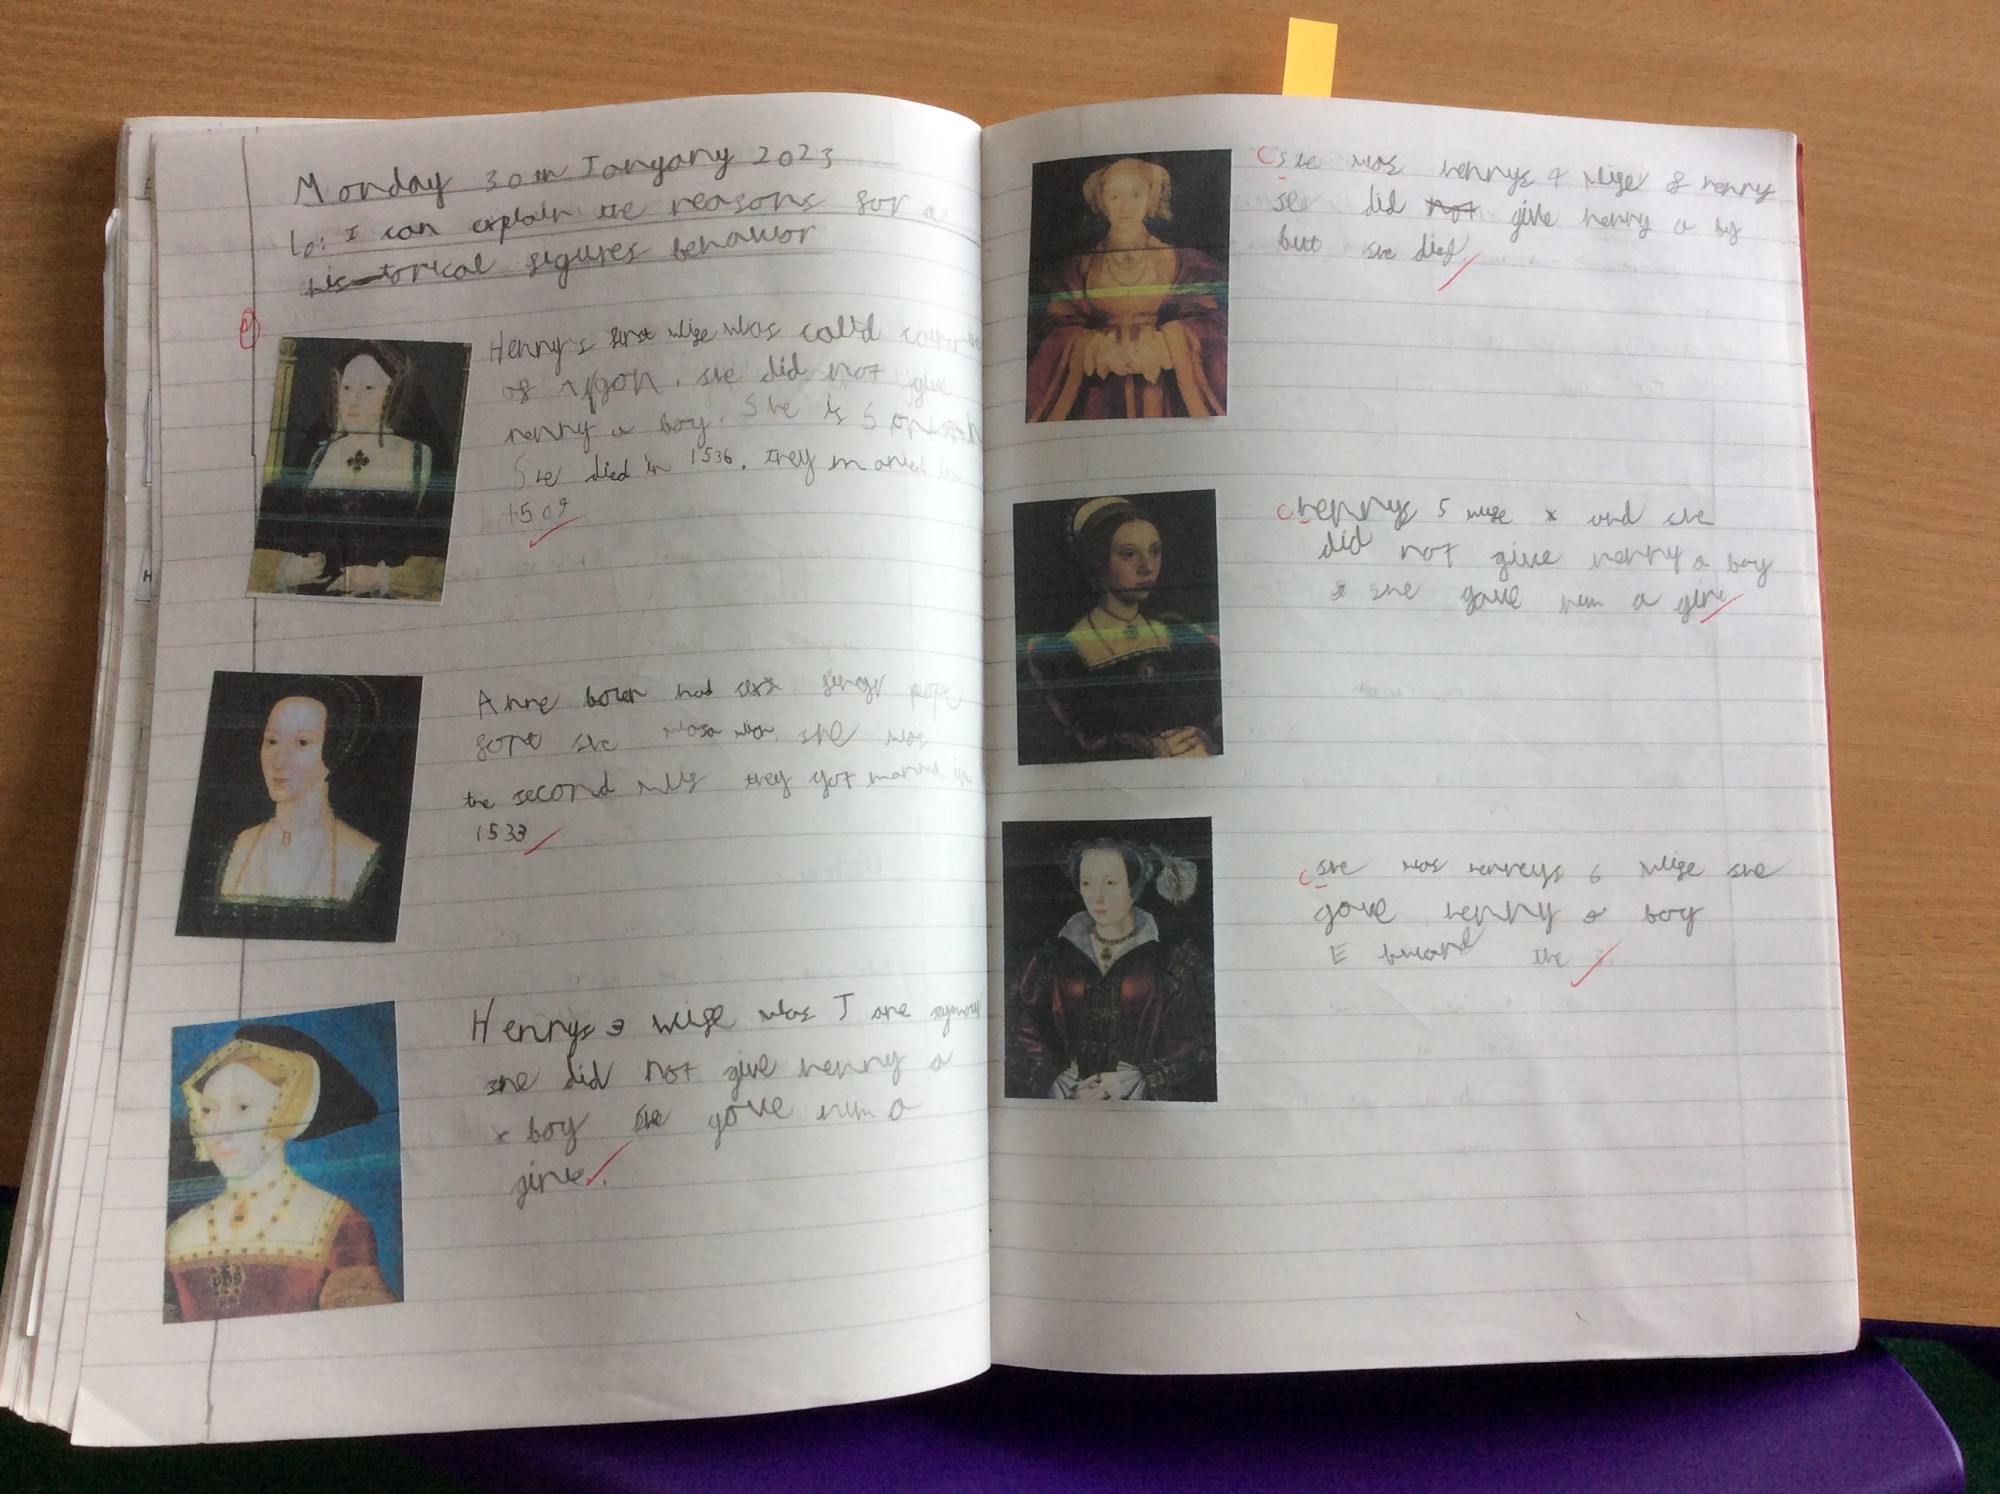 Monday 30th Janyary 2023
Lo: I can explain the reasons for a
his-torical figures behavior
Henny's first wife was call'd
of. she did not give
henny a boy. She is
She died in 1536. they maried in
1509
Anne had six finger
she was
the second they got married in
1533
Hennys 3 wife was Jane
she did not give henny a
boy she gave him a
She was hennys 4 wife henny
se did not give henny a by
but she died
hennys 5 wife and she
did not give henny a boy
she gave him a
she was henneys 6 wife she
gave henny a boy
the
B